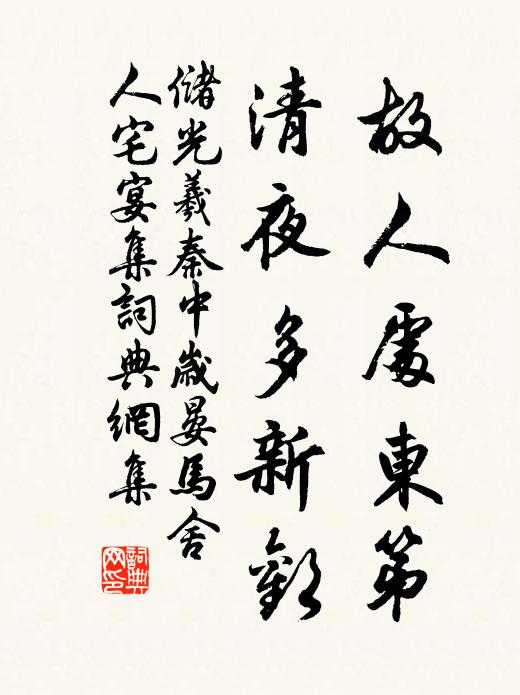 故人處東第
清夜多新歡
儲光羲秦中歲晏馬舍
人宅宴集詞典網集
詞典
网印